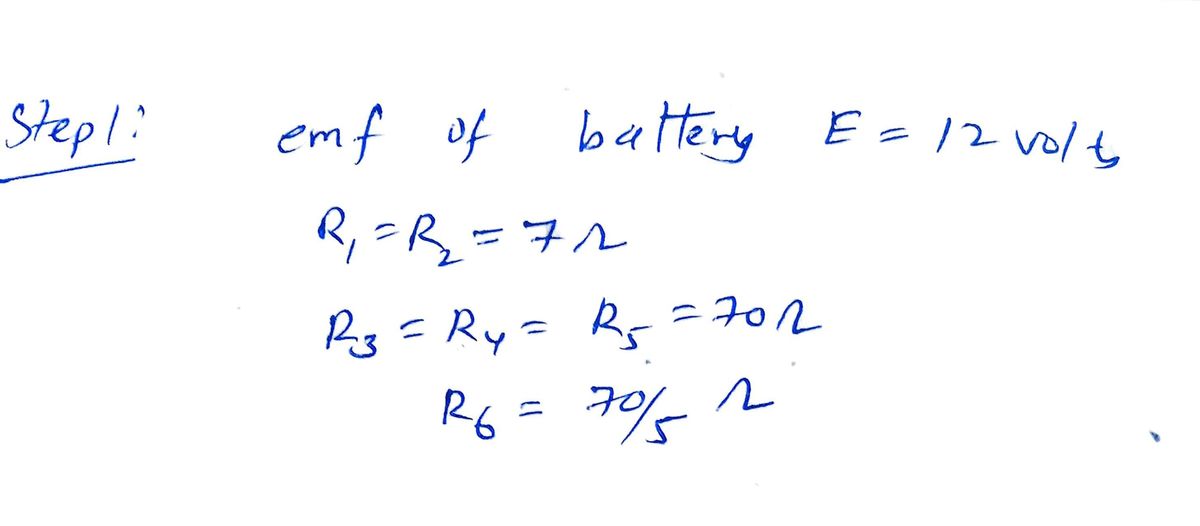 Step1: emf of battery E = 12 volts
R₁ = R₂ = 7 Ω
R₃ = R₄ = R₅ = 70 Ω
R₆ = 70/5 Ω